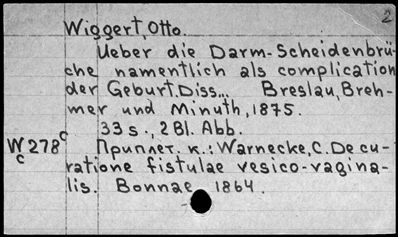 2
Wiggert, Otto.
Ueber die Darm-Scheidenbrü-
che namentlich als complication
der Geburt. Diss... Breslau, Breh-
mer und Minuth, 1875.
33 s., 2 Bl. Abb.
Wc 278c Приплет. к.: Warnecke, C. De cu-
ratione fistulae vesico-vagina-
lis. Bonnae 1864.